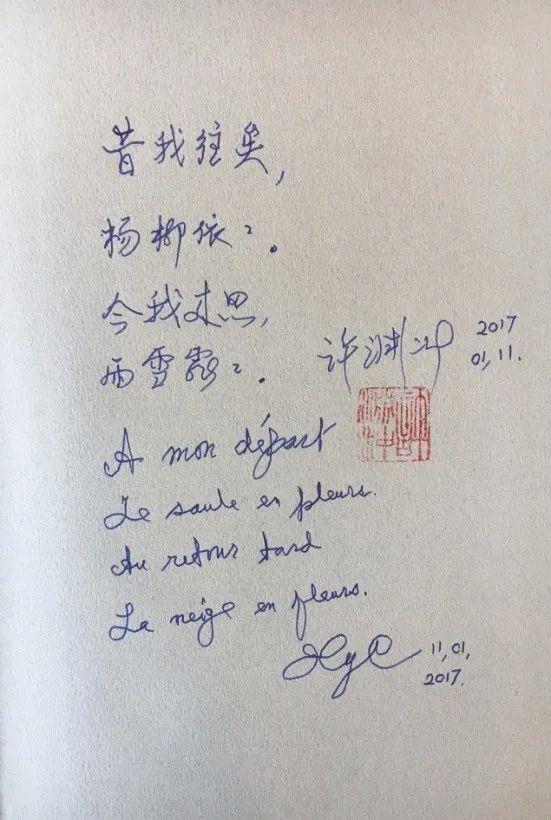 昔我往矣，
杨柳依〻。
今我来思，
雨雪霏〻。
许渊冲 2017
01,11.
A mon départ
Le saule en pleurs.
Au retour tard
La neige en fleurs.
XyC 11,01,
2017.